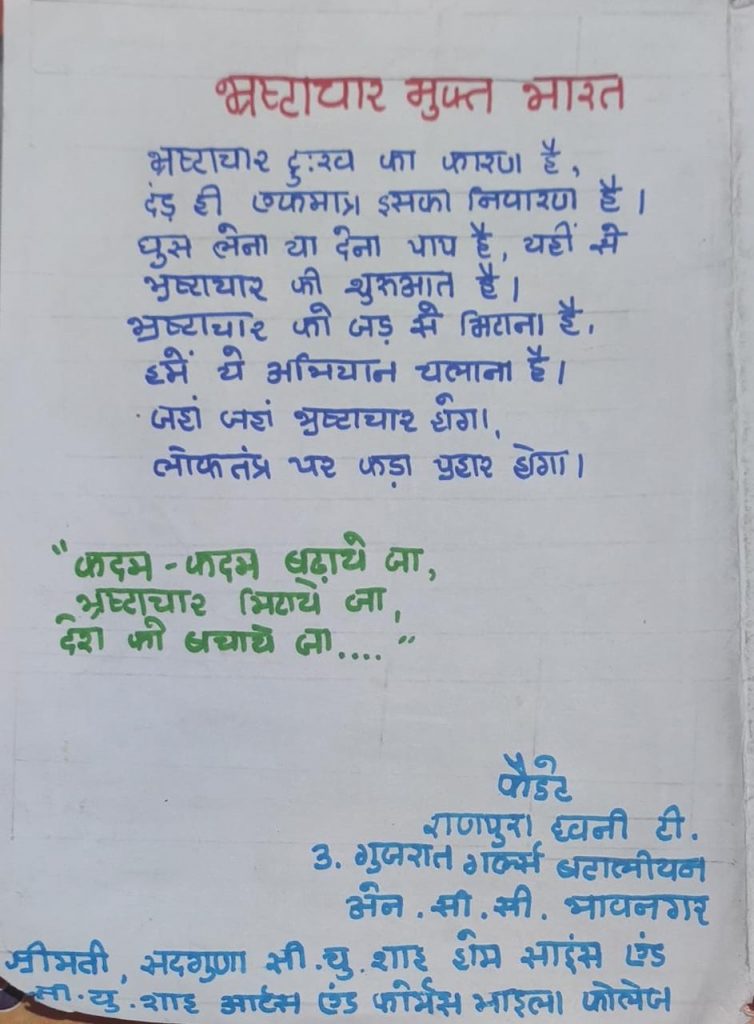 भ्रष्टाचार मुक्त भारत
भ्रष्टाचार दुःख का कारण है,
दंड ही एकमात्र इसका निवारण है।
घुस लेना या देना पाप है, यहीं से
भ्रष्टाचार की शुरुआत है।
भ्रष्टाचार को जड़ से मिटाना है,
हमें ये अभियान चलाना है।
जहां जहां भ्रष्टाचार होगा,
लोकतंत्र पर कड़ा प्रहार होगा।
"कदम - कदम बढ़ाये जा,
भ्रष्टाचार मिटाये जा,
देश को बचाये जा...."
कैडेट
राणपुरा ध्वनी टी.
3. गुजरात गर्ल्स बटालीयन
अेन . सी . सी . भावनगर
श्रीमती, सदगुणा सी.यु.शाह होम साइंस एंड
सी.यु.शाह आर्टस एंड कोर्मस महिला कोलेज